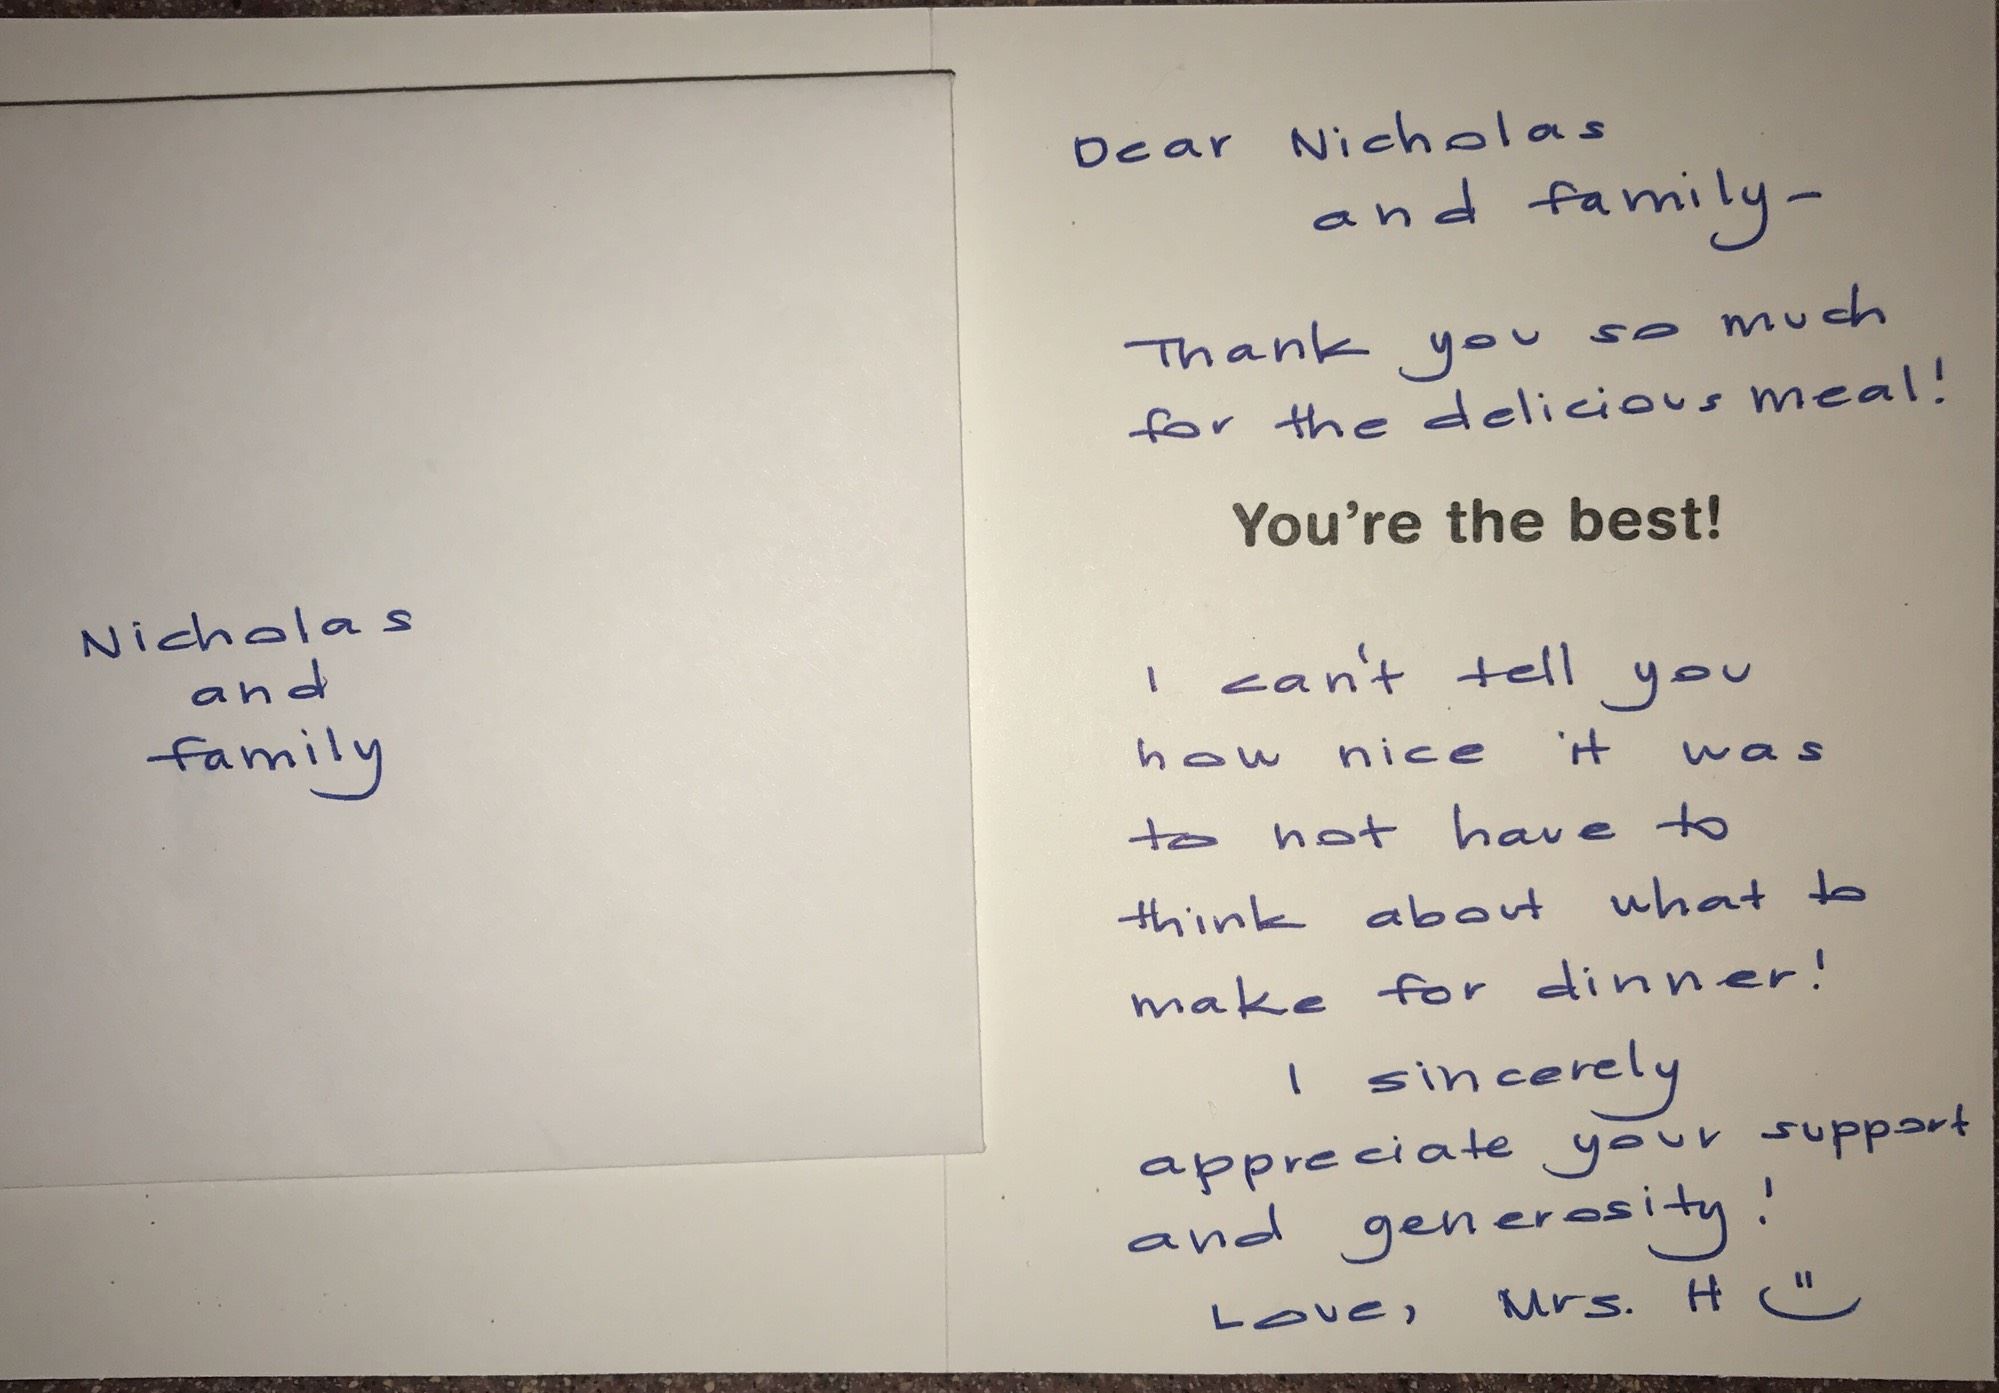 Nicholas
and
family
Dear Nicholas
and family-
Thank you so much
for the delicious meal!
You're the best!
I can't tell you
how nice it was
to not have to
think about what to
make for dinner!
I sincerely
appreciate your support
and generosity!
Love, Mrs. H